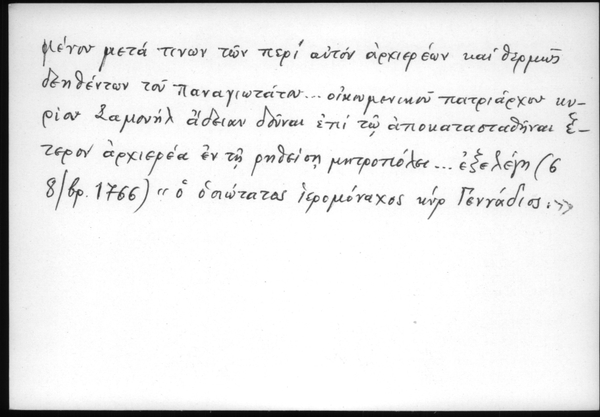 μένου μετά τινων τῶν περί αὐτόν ἀρχιερέων καί θερμῶς
δεηθέντων τοῦ παναγιωτάτου... οἰκουμενικοῦ πατριάρχου κυ-
ρίου Σαμουήλ ἄδειαν δοῦναι ἐπί τῷ ἀποκατασταθῆναι ἕ-
τερον ἀρχιερέα ἐν τῇ ῥηθείσῃ μητροπόλει... ἐξελέγη (6
8/βρ. 1766) «ὁ ὁσιώτατος ἱερομόναχος κύρ Γεννάδιος.»